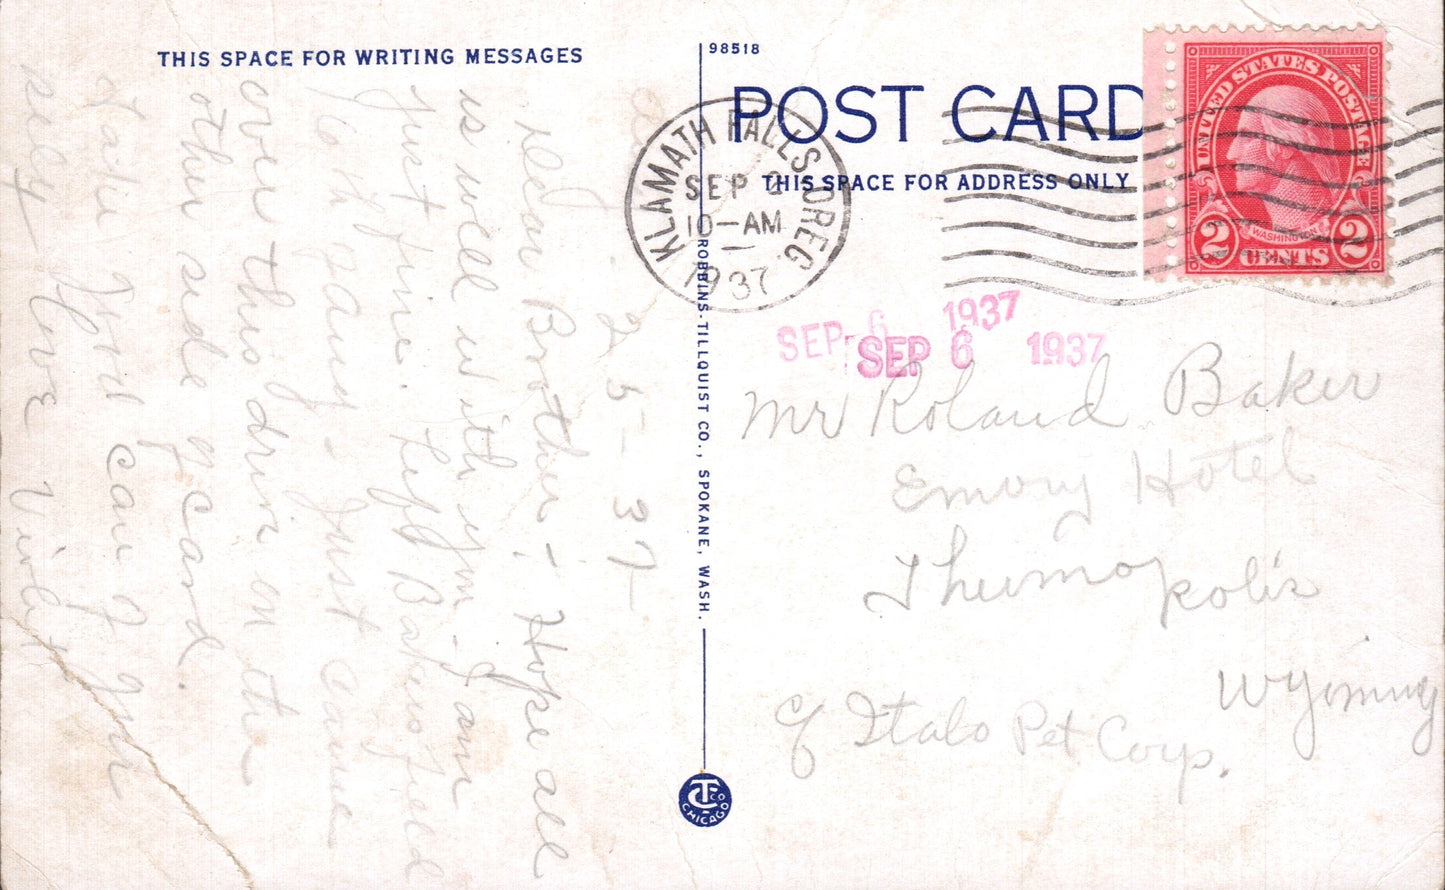 THIS SPACE FOR WRITING MESSAGES
9-2-37
Dear Brother:- Hope all
is well with you - I am
just fine. Left Bakersfield
to-day - Just came
over this drive on the
other side of card.
Take good care of your
Love Violet
98518
POST CARD
THIS SPACE FOR ADDRESS ONLY
KLAMATH FALLS OREG.
SEP
10-AM
1937
UNITED STATES POSTAGE
WASHINGTON
2 CENTS 2
SEP 6 1937
SEP 6 1937
Mr Roland Baker
Emory Hotel
Thermopolis
Wyoming
℅ Italo Pet Corp.
ROBBINS-TILLQUIST CO., SPOKANE, WASH.
CT CO
CHICAGO